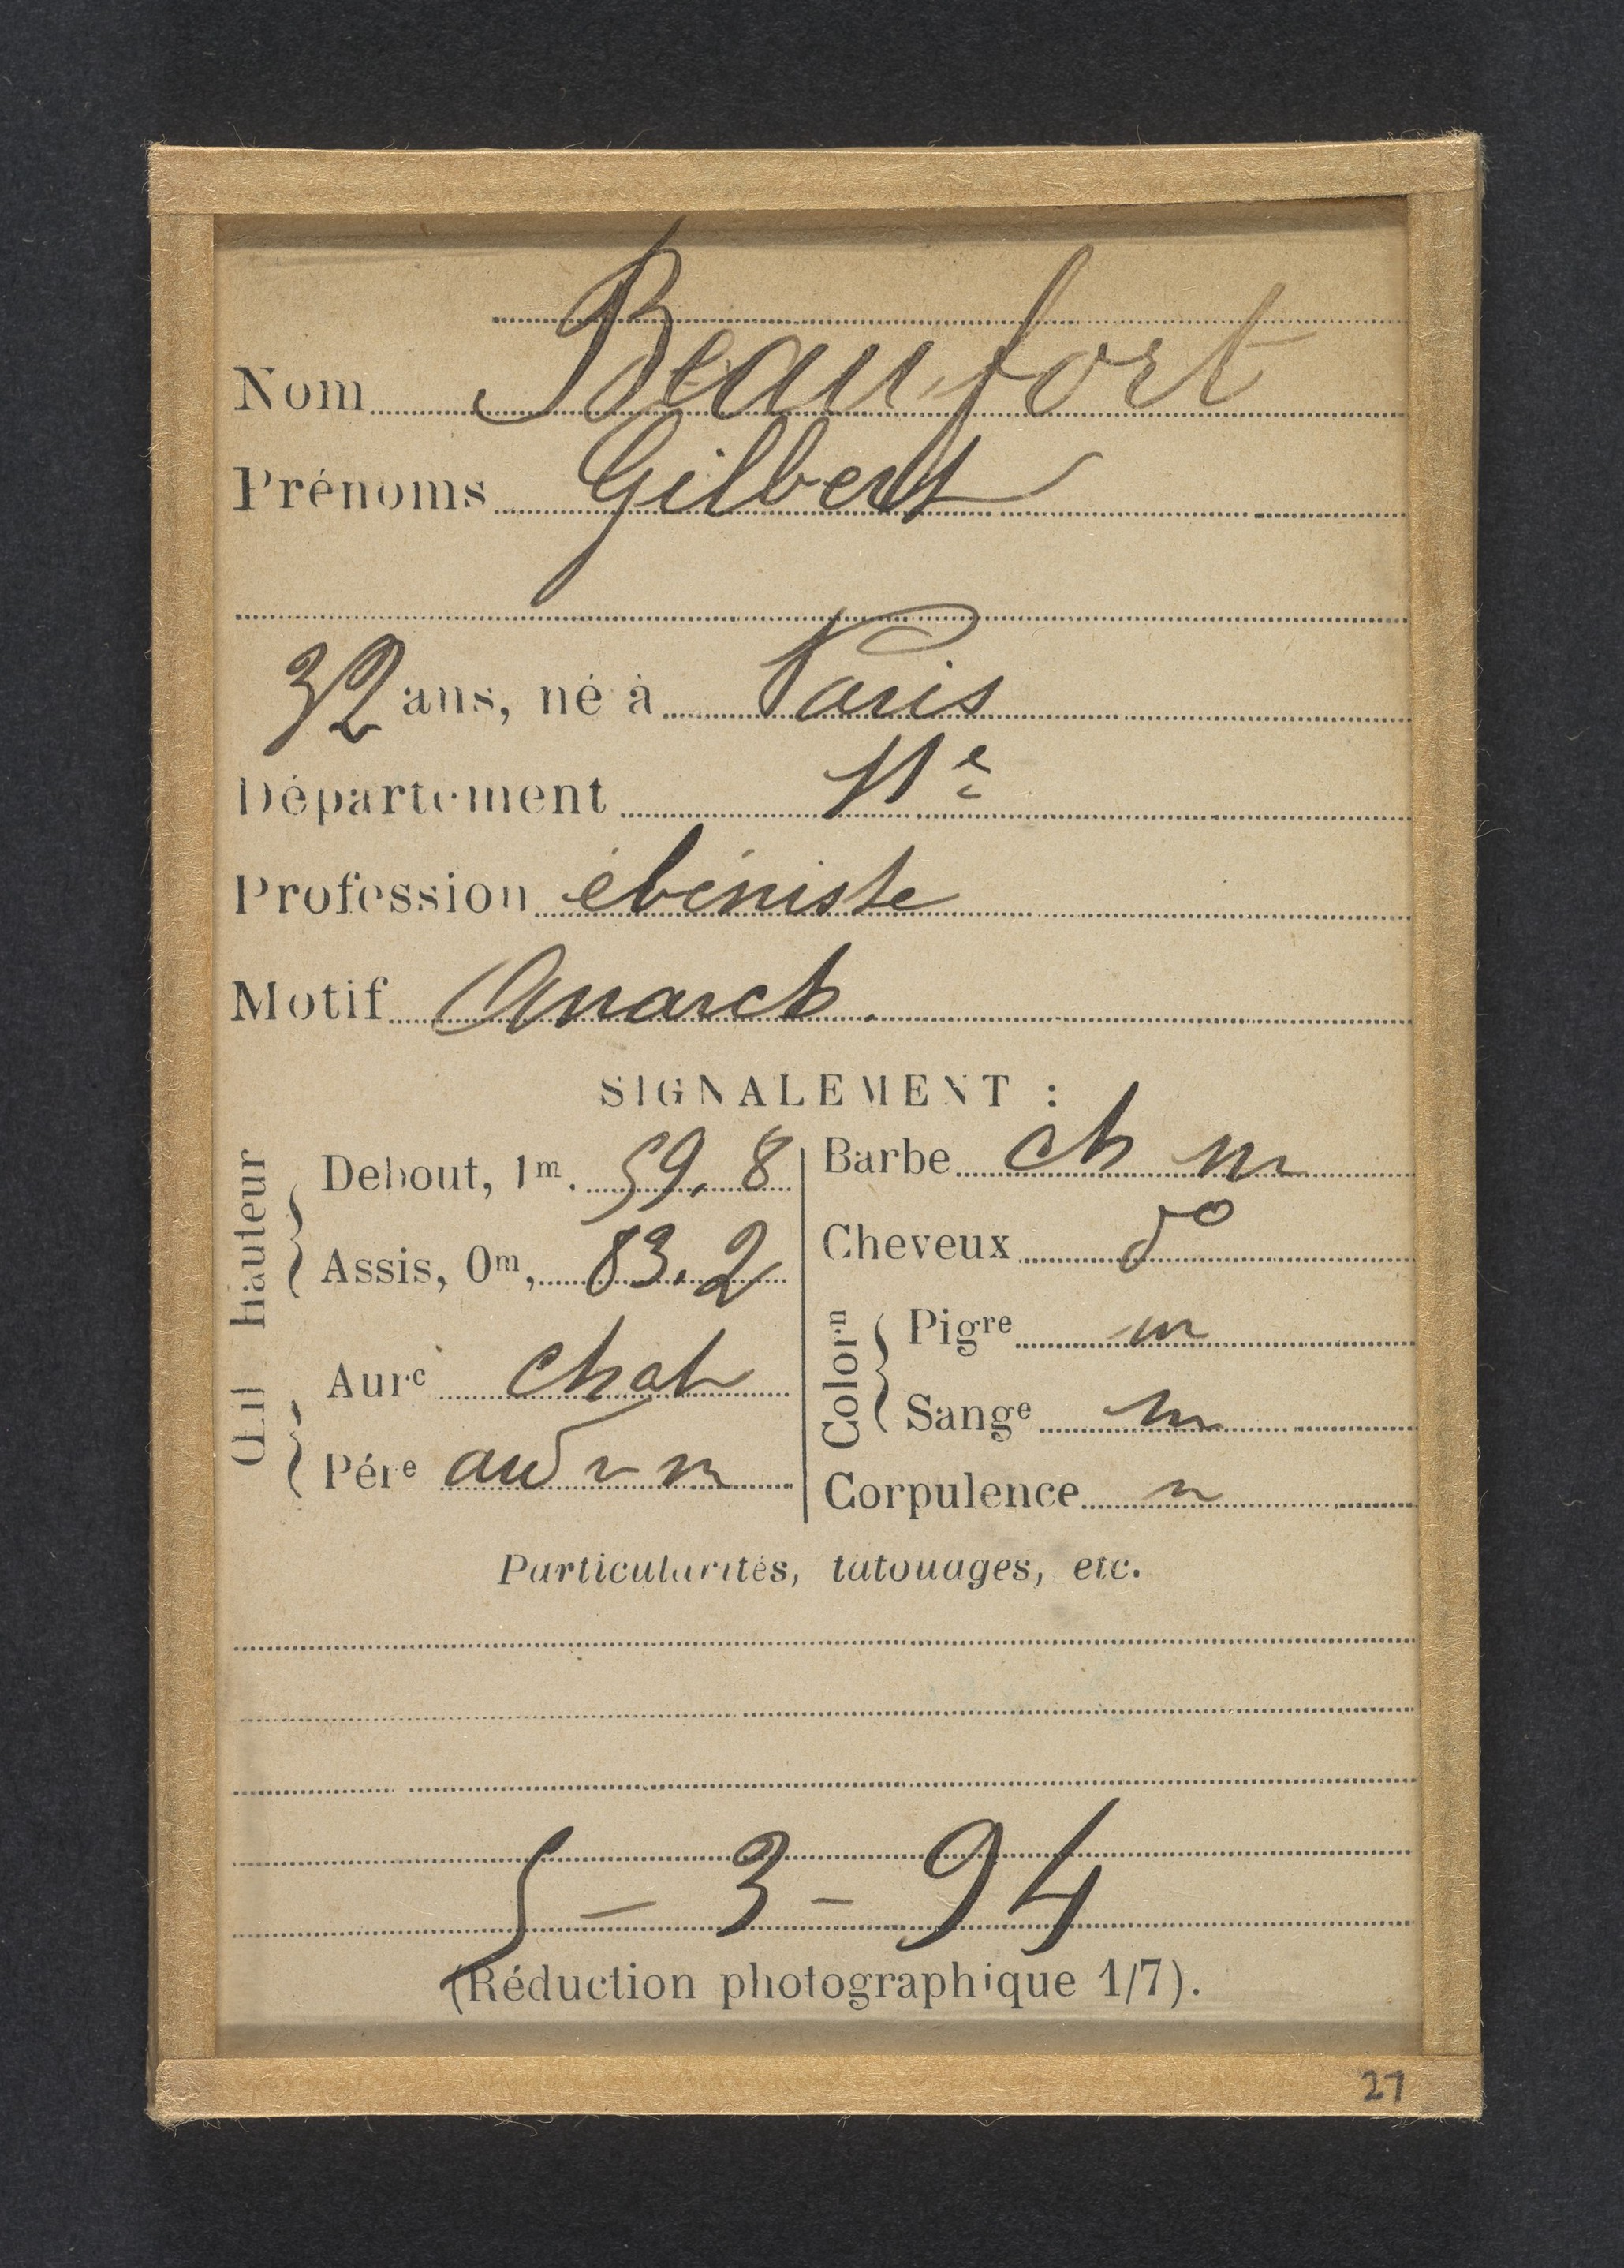 Nom Beaufort
Prénoms Gilbert
32 ans, né à Paris
Département 11e
Profession ébéniste
Motif Anarch.
SIGNALEMENT :
Hauteur
Debout, 1m. 59,8
Assis, 0m, 83,2
Œil
Aure chat
Pére m
Barbe ch m
Cheveux do
Colorn
Pigre m
Sange m
Corpulence
Particularités, tatouages, etc.
5 - 3 - 94
(Réduction photographique 1/7).
27